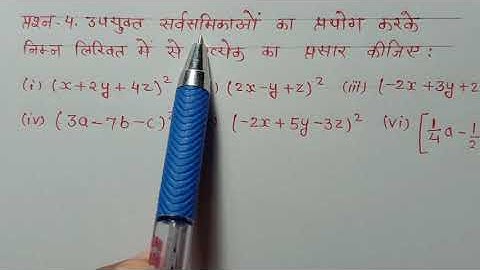 प्रश्न-4. उपयुक्त सर्वसमिकाओं का प्रयोग करके
निम्न लिखित में से का प्रसार कीजिए :
(i) (x+2y+4z)² (2x-y+z)² (iii) (-2x+3y+2
(iv) (3a-7b-c)² (-2x+5y-3z)² (vi) [1/4a-1/2